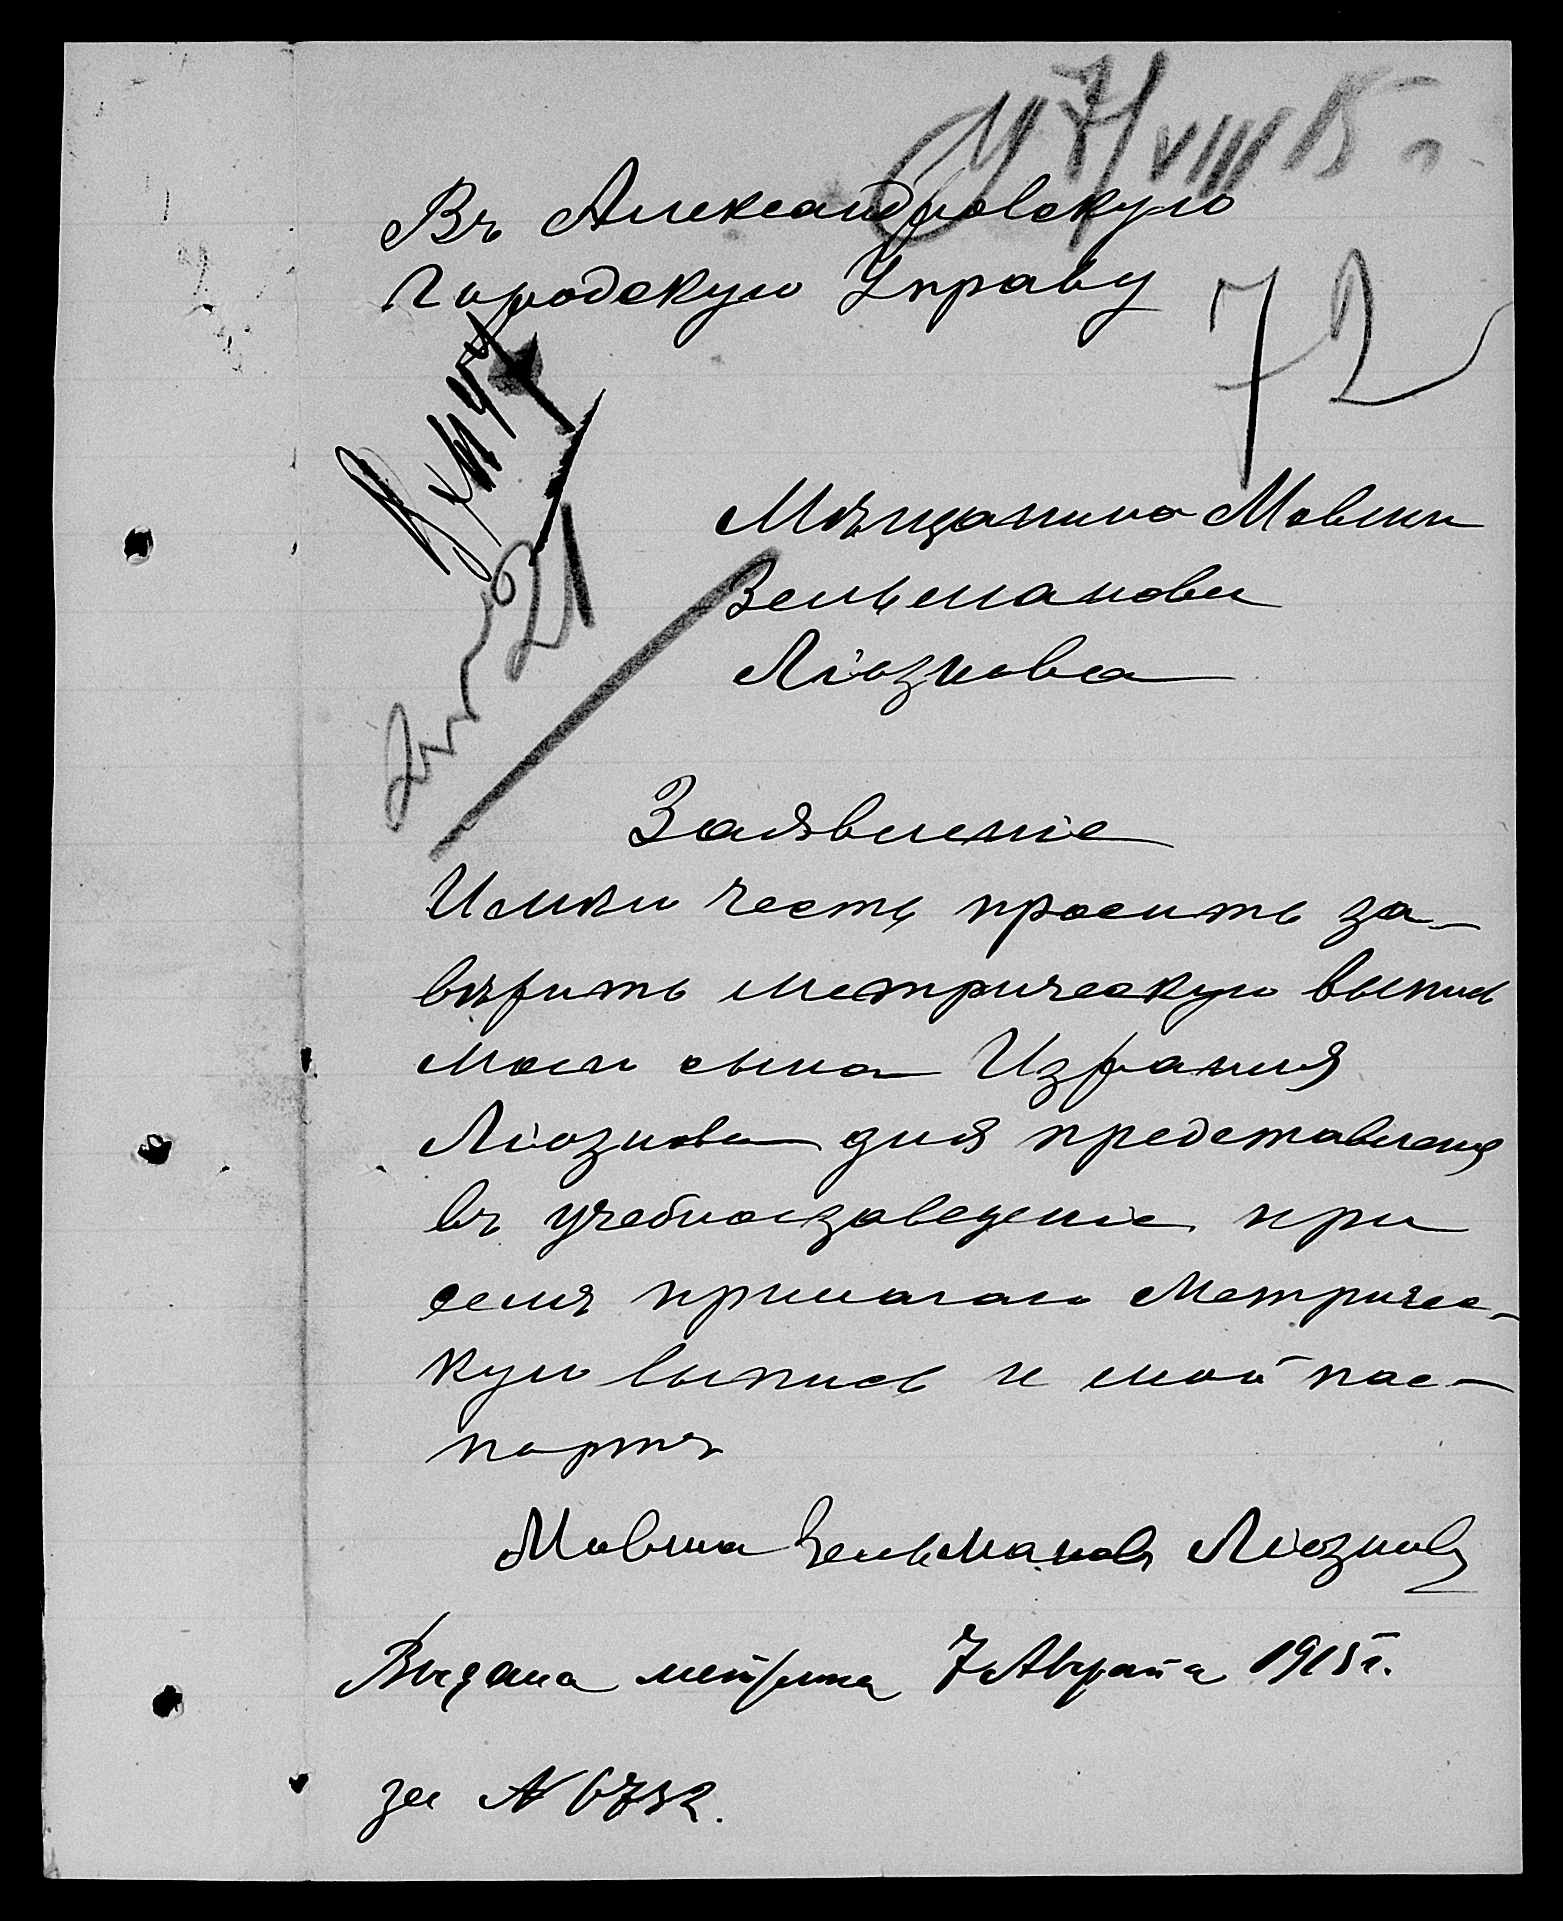 7/VIII 15 г.
Въ Александровскую
Городскую Управу
72
21
Мѣщанина Мовши
Зельманова
Ліознова
Заявленіе
Имѣю честь просить за-
вѣрить метрическую выпись
моего сына Израиля
Ліознова для представленія
въ учебноезаведеніе при
семъ прилагаю Метричес-
кую выпись и мой пас-
портъ
Мовша Зельмановъ Ліозновъ
Выдана метрика 7 Августа 1915 г.
за № 6732.